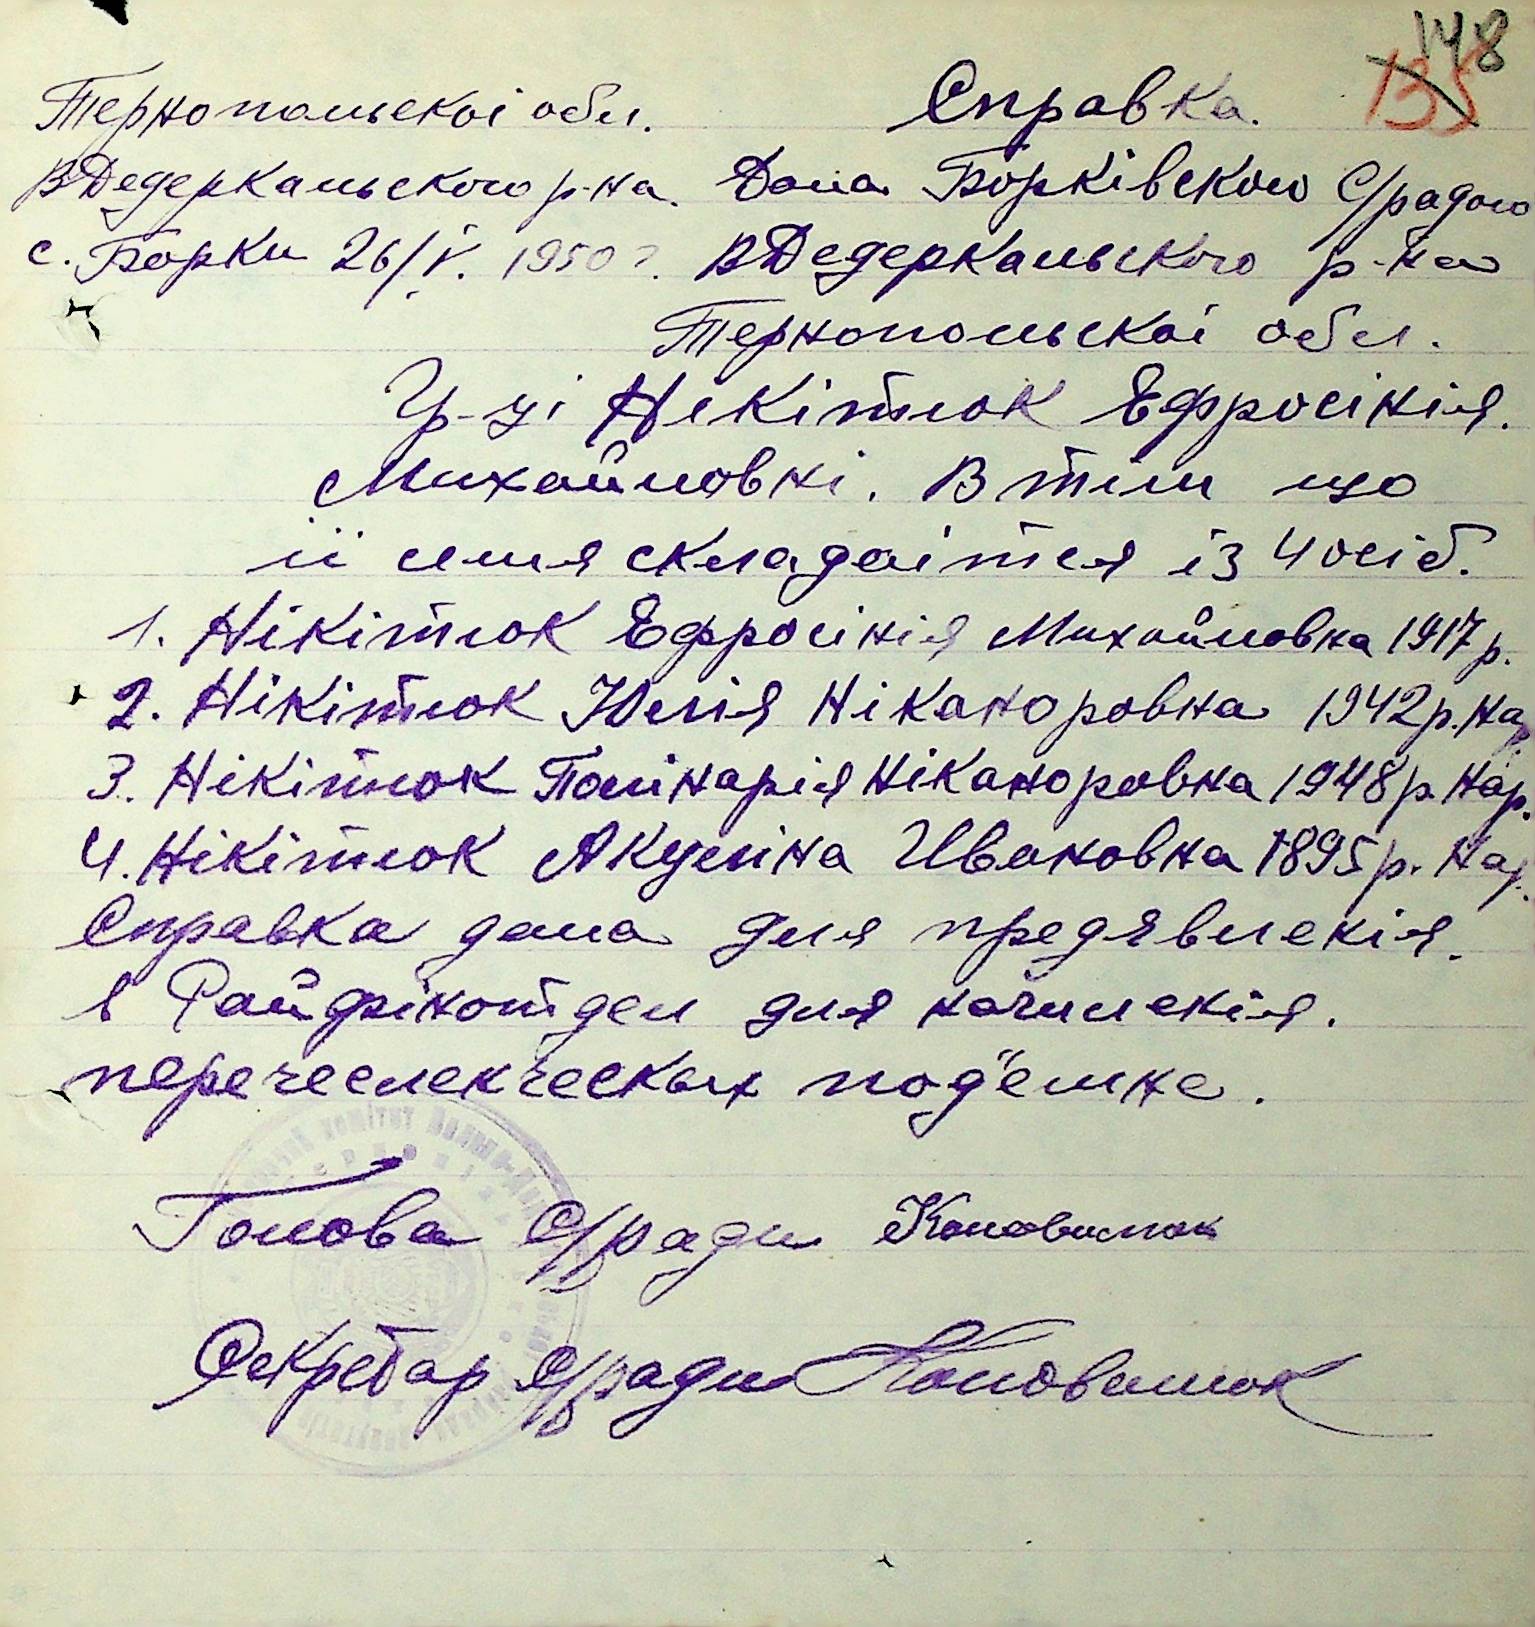 148
135
Тернопольскоі обл.
ВДедеркальского р-на.
с. Борки 26/V. 1950 г.
Справка.
Дана Борківского С/радою
ВДедеркальского р-на
Тернопольскоі обл.
Гр-ці Нікітюк Ефросінія.
Михайловні. В тім що
іі семя складаітся із 4 осіб.
1. Нікітюк Ефросінія Михайловна 1917 р.
2. Нікітюк Юлія Ніканоровна 1942 р. нар
3. Нікітюк Полінарія Ніканоровна 1948 р. нар.
4. Нікітюк Акуліна Ивановна 1895 р. нар.
Справка дана для предявленія.
в Райфінотдел для начиленія.
перечесленческых под'емне.
Голова С/ради
Секретар С/ради